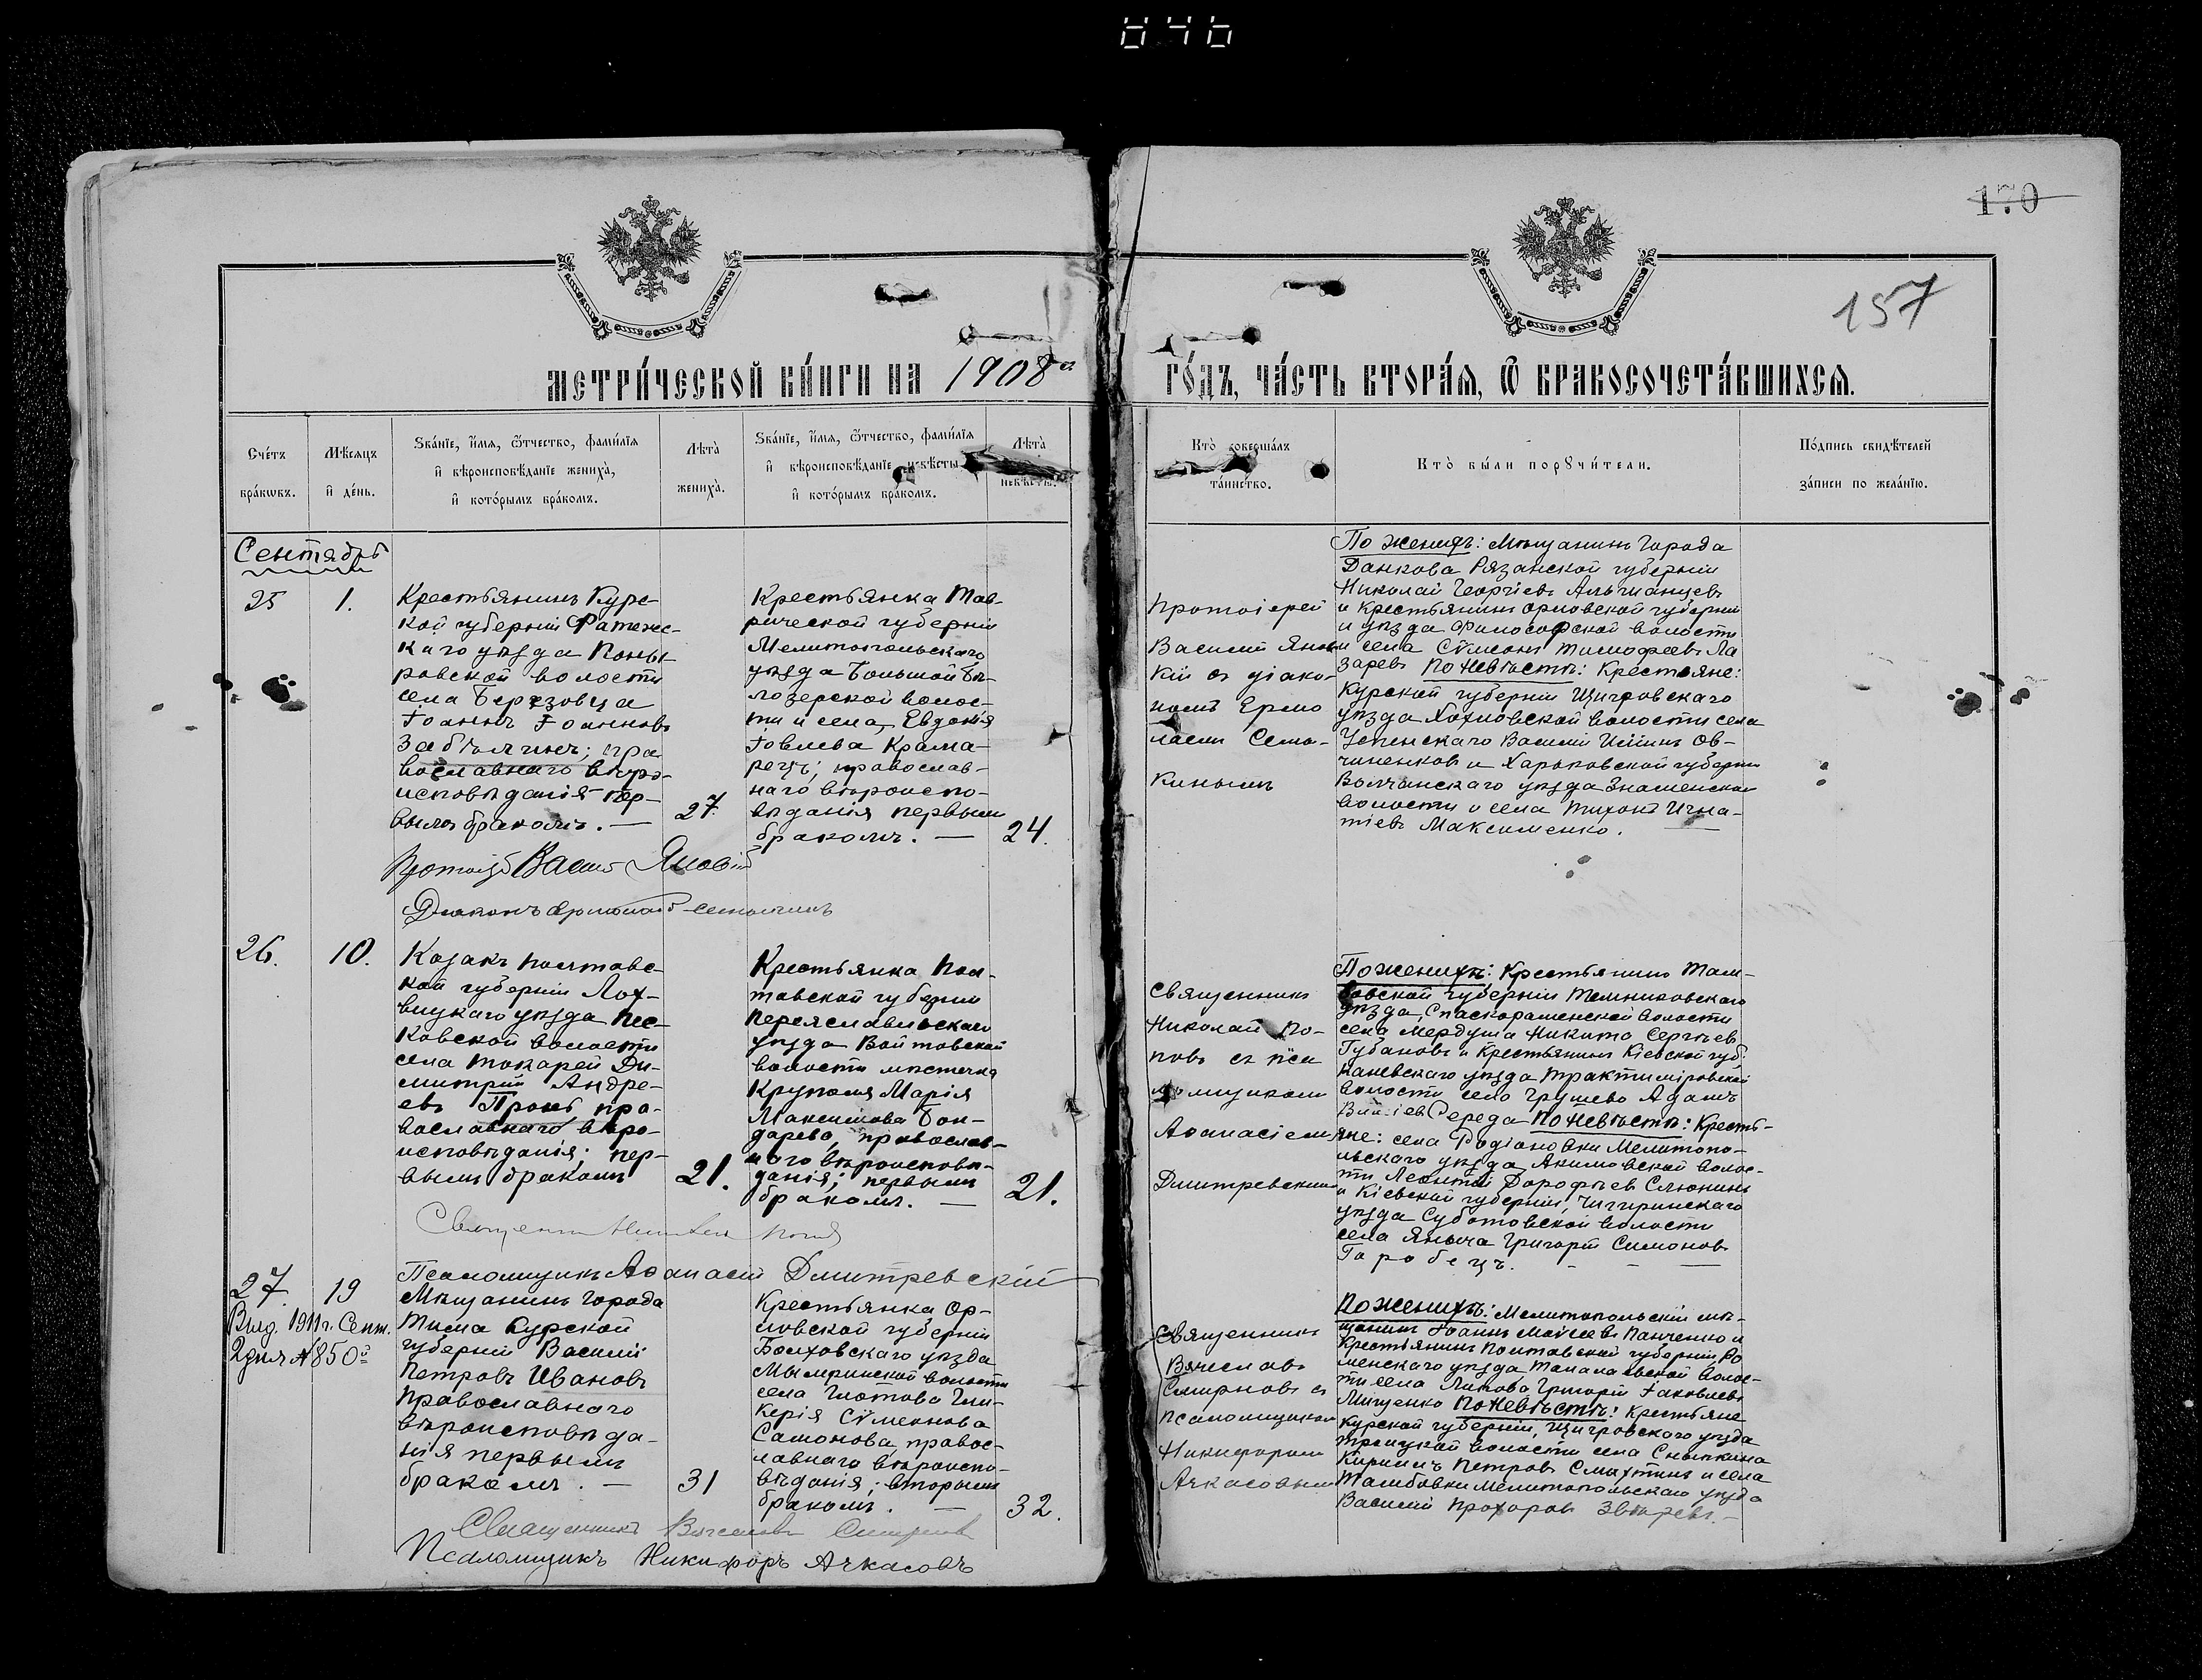 846
170
157
МЕТРИ́ЧЕСКОЙ КНИ́ГИ НА 1908й
ГО́ДЪ, ЧА́СТЬ ВТОРА́Я, Ѽ БРАКОСОЧЕТА́ВШИХСЯ.
Сче́тъ бра́кѡвъ.
Мѣ́сяцъ и҆ де́нь.
Зва́нїе, и҆́мя, ѻ҆́тчество, фами́лїя
и҆ вѣроисповѣ́данїе жениха̀,
и҆ кото́рымъ бра́комъ.
Лѣта̀ жениха̀.
Зва́нїе, и҆́мя, ѻ҆́тчество, фами́лїя
и҆ вѣроисповѣ́данїе невѣ́сты
и҆ кото́рымъ бра́комъ.
Лѣта̀ невѣ́сты.
Кто̀ соверша́лъ
та́инство.
Кто̀ бы́ли порꙋчи́тели.
По́дпись свидѣ́телей
за́писи по жела́нїю.
Сентябрь
25
1.
Крестьянинъ Курс-
кой губерніи Фатежс-
каго уѣзда Поны-
ровской волости
села Березовца
Іоаннъ Іоанновъ
Забѣлинъ; пра
вославнаго вѣро-
исповѣданія пер-
вымъ бракомъ. —
27.
Крестьянка Тав-
рической губерніи
Мелитопольскаго
уѣзда Большой Бѣ-
лозерской волос-
ти и села, Евдокія
Іовлева Крама-
рецъ; православ-
наго вѣроиспо-
вѣданія первымъ
бракомъ. —
24.
Протоіерей
Василій Яновс
кій съ діако-
номъ Ермо
лаемъ Семо-
кинымъ
По женихѣ: Мѣщанинъ города
Данкова Рязанской губерніи
Николай Георгіевъ Альчанцевъ
и крестьянинъ Орловской губерніи
и уѣзда Философской волости
и села Сѵмеонъ Тимофеевъ Ла
заревъ По невѣстѣ: Крестьяне:
Курской губерніи Щигровскаго
уѣзда Хохловской волости села
Успенскаго Василій Ильинъ Ов-
чиненковъ и Харьковской губерніи
Волчанскаго уѣзда Знаменской
волости и села Тихонъ Игна-
тіевъ Максименко. —
Протоіер Васил Яновскій
Діаконъ Ермолай Семокинъ
26.
10.
Козакъ Полтавс-
кой губерніи Лох-
вицкаго уѣзда Пес-
ковской волости
села Токарей Ди-
митрій Андре-
евъ Пронь, пра-
вославнаго вѣро-
исповѣданія; пер-
вымъ бракомъ
21.
Крестьянка Пол-
тавской губерніи
Переяславльскаго
уѣзда Войтовской
волости мѣстечка
Круполя Марія
Максимова Бон-
дарева, православ-
наго вѣроисповѣ-
данія; первымъ
бракомъ. —
21.
Священникъ
Николай По-
повъ съ пса
ломщикомъ
Аѳанасіемъ
Дмитревскимъ
По женихѣ: Крестьянинъ Там-
бовской губерніи Темниковскаго
уѣзда, Спаскорашенской волости
села Мердуша Никита Сергѣевъ
Губановъ и крестьянинъ Кіевской губ.
Каневскаго уѣзда Трактиміровской
волости села Грушево Адамъ
Середа По невѣстѣ: Кресть-
яне: села Родіоновки Мелитопо-
льскаго уѣзда, Акимовской волос-
ти Леонтій Дорофѣевъ Слюнинъ
и Кіевской губерніи, Чигиринскаго
уѣзда Суботовской волости
села Яныча Григорій Симоновъ
Горобецъ. - - —
Священникъ Николай Поповъ
Псаломщикъ Аѳанасій Дмитревскій
27.
19
Выд. 1911г. Сент.
2 дня №850й
Мѣщанинъ города
Тима Курской
губерніи Василій
Петровъ Ивановъ
православнаго
вѣроисповѣда-
нія первымъ
бракомъ. —
31
Крестьянка Ор-
ловской губерніи
Болховскаго уѣзда
Мымринской волости
села Глотова Гли-
керія Сѵмеонова
Самонова, правос-
лавнаго вѣроиспо-
вѣданія; вторымъ
бракомъ. —
32.
Священникъ
Вячеславъ
Смирновъ съ
псаломщикомъ
Никифоромъ
Ачкасовымъ
По женихѣ: Мелитопольскій мѣ-
щанинъ Іоаннъ Моисеевъ Панченко и
крестьянинъ Полтавской губерніи, Ро
менскаго уѣзда Талалаевской волос-
ти села Липова Григорій Іаковлевъ
Мищенко По невѣстѣ: Крестьяне
Курской губерніи, Щигровскаго уѣзда
Троицкой волости села Сныткина
Кириллъ Петровъ Смахтинъ и села
Тамбовки Мелитопольскаго уѣзда
Василій Прохоровъ Звѣревъ. —
Священникъ Вячеславъ Смирновъ
Псаломщикъ Никифоръ Ачкасовъ